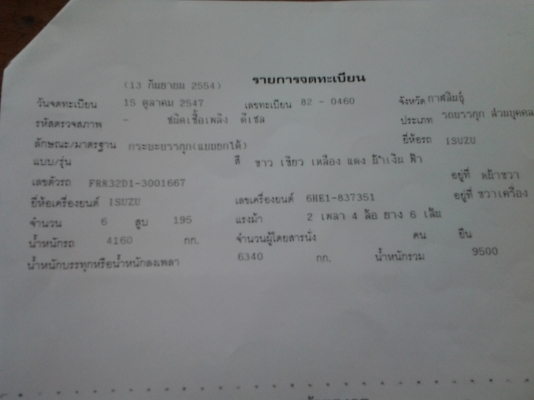 (13 กันยายน 2554) รายการจดทะเบียน
วันจดทะเบียน 15 ตุลาคม 2547 เลขทะเบียน 82 - 0460 จังหวัด กาฬสินธุ์
รหัสตรวจสภาพ - ชนิดเชื้อเพลิง ดีเซล ประเภท รถบรรทุก ส่วนบุคคล
ลักษณะ/มาตรฐาน กระบะบรรทุก(แบบยกได้) ยี่ห้อรถ ISUZU
แบบ/รุ่น สี ขาว เขียว เหลือง แดง น้ำเงิน ฟ้า
เลขตัวรถ FRR32D1-3001667 อยู่ที่ หน้าขวา
ยี่ห้อเครื่องยนต์ ISUZU เลขเครื่องยนต์ 6HE1-837351 อยู่ที่ ขวาเครื่อง
จำนวน 6 สูบ 195 แรงม้า 2 เพลา 4 ล้อ ยาง 6 เส้น
น้ำหนักรถ 4160 กก. จำนวนผู้โดยสารนั่ง คน ยืน
น้ำหนักบรรทุกหรือน้ำหนักลงเพลา 6340 กก. น้ำหนักรวม 9500